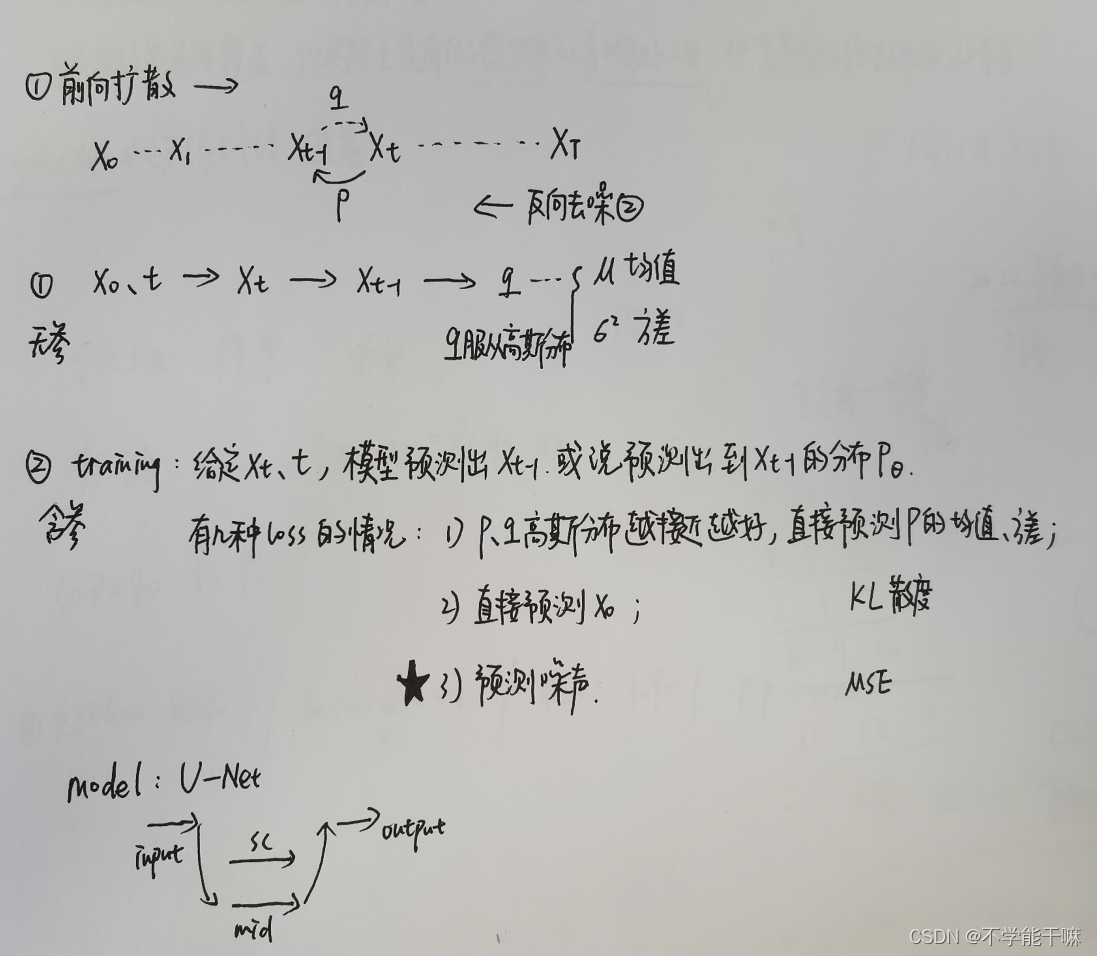 ① 前向扩散 →
q
X0 --- X1 ------ Xt-1 Xt ------- XT
p
← 反向去噪②
① X0、t → Xt → Xt-1 → q --- { μ 均值
无参 q服从高斯分布 6² 方差
② training: 给定Xt、t, 模型预测出Xt-1. 或说预测出到Xt-1的分布Pθ.
含参 有几种loss的情况: 1) p、q高斯分布越接近越好, 直接预测p的均值、方差;
2) 直接预测X0; KL散度
★ 3) 预测噪声. MSE
model: U-Net
→ → output
input sc
mid
CSDN @不学能干嘛